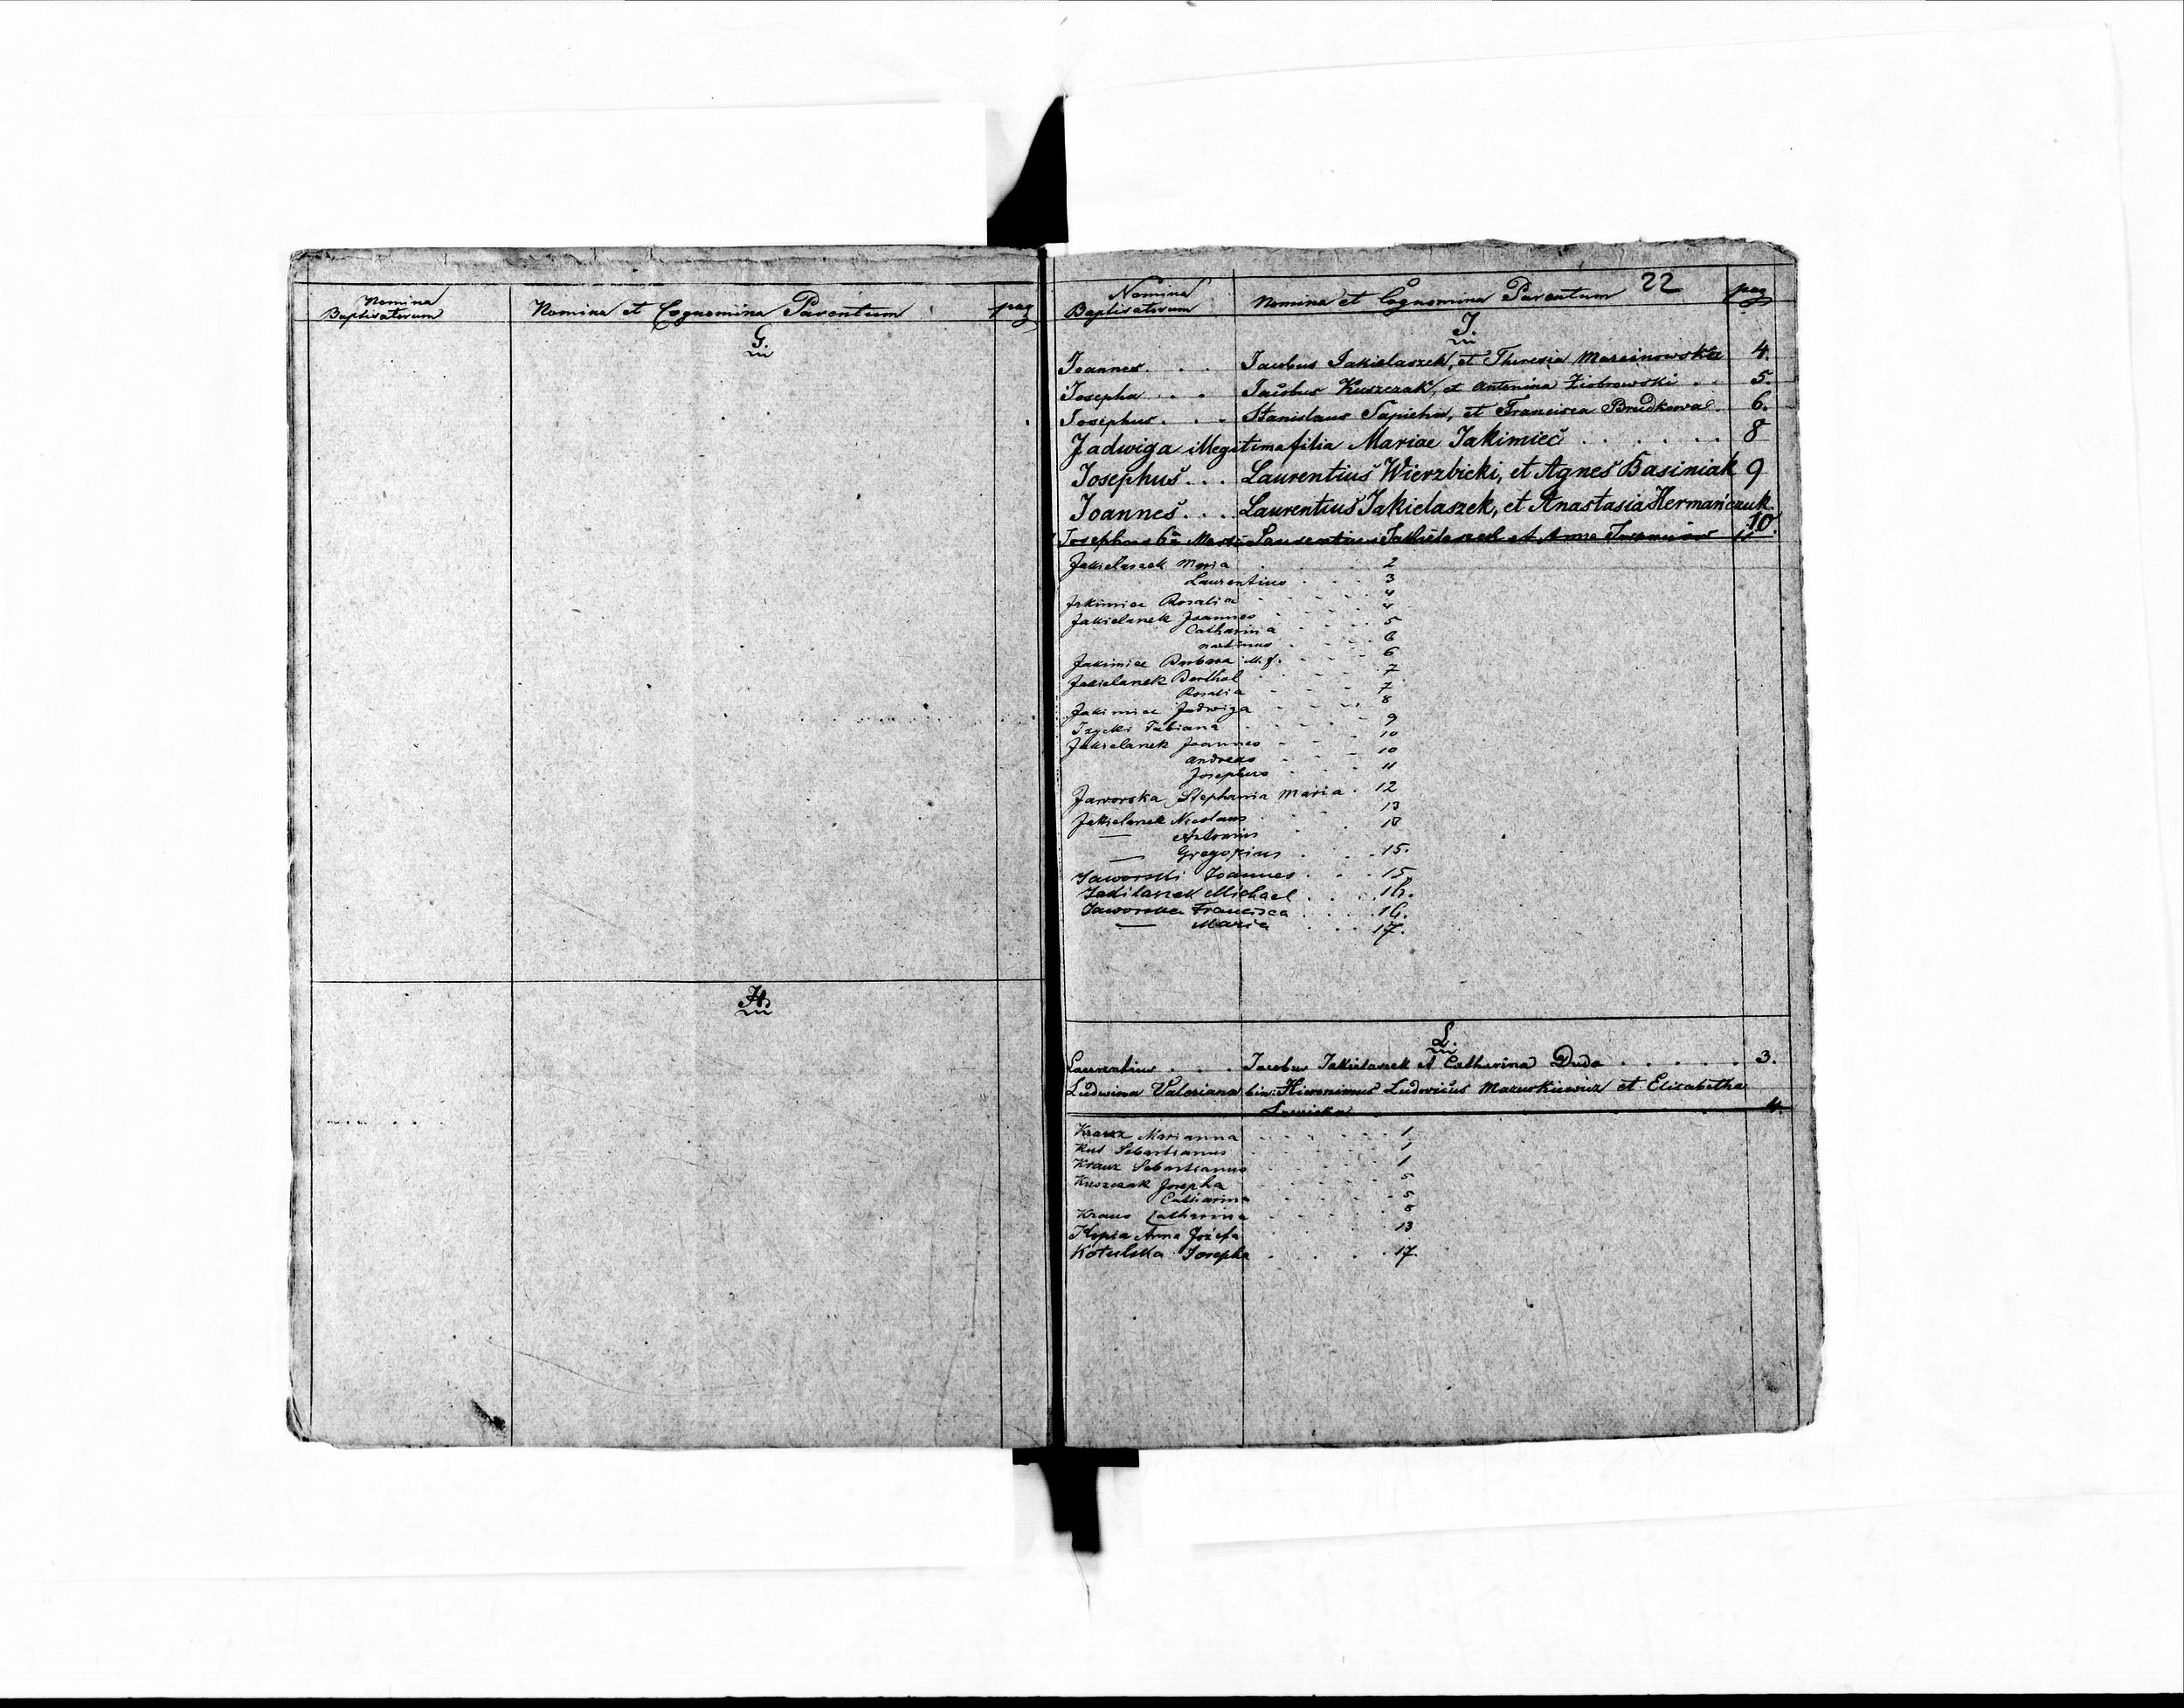 Nomina
Baptisatorum
Nomina et Cognomina Parentum
pag
G.
H.
22
Nomina
Baptisatorum
Nomina et Cognomina Parentum
pag
I.
Joannes . . . Jacobus Jakielaszek, et Theresia Marcinowska 4.
Josepha . . . Jacobus Kuszczak, et Antonina Ziobrowski . . 5.
Josephus . . . Stanislaus Sapieha, et Francisca Brudkowal. 6.
Jadwiga illegitima filia Mariae Jakimiec . . . . . . 8
Josephus . . . Laurentius Wierzbicki, et Agnes Basiniak 9
Joannes . . . Laurentius Jakielaszek, et Anastasia Hermańczuk. 10.
Josephus Laurentius Jakielaszek et Anna 11
Jakielaszek Maria . . . 2
Laurentius . . . 3
Jakimiec Rosalia . . . 4
Jakielanek Joannes . . . 4
Catharina . . . 5
Martinus . . . 6
Jakimiec Barbara . . . 6
Jakielanek Barthol . . . 7
Rosalia . . . 7
Jakimiec Jadwiga . . . 8
Izycki Fabiana . . . 9
Jakielanek Joannes . . . 10
Andreas . . . 10
Josephus . . . 11
Jaworska Stephania Maria . 12
Jakielanek Nicolaus . . . 13
— Antonius . . .
— Gregorius . . . 15.
Jaworski Joannes . . . 15
Jakilanek Michael . . . 16.
Jaworska Francisca . . . 16.
— Maria . . . 17.
L.
Laurentius . . . Jacobus Jakielaszek et Catharina Duda . . . . . . 3.
Ludwina Valeriana bin: Hieronimus Ludovicus Mazurkiewicz et Elisabetha
4.
Krausz Marianna . . . 1
Kus Sebastianus . . . 1
Krauz Sebastianus . . . 1
Kuszczak Josepha . . . 5
Catharina . . . 5
Kraus Catharina . . . 8
Klopia Anna Józefa . . . 13
Kotulska Josepha . . . 17.